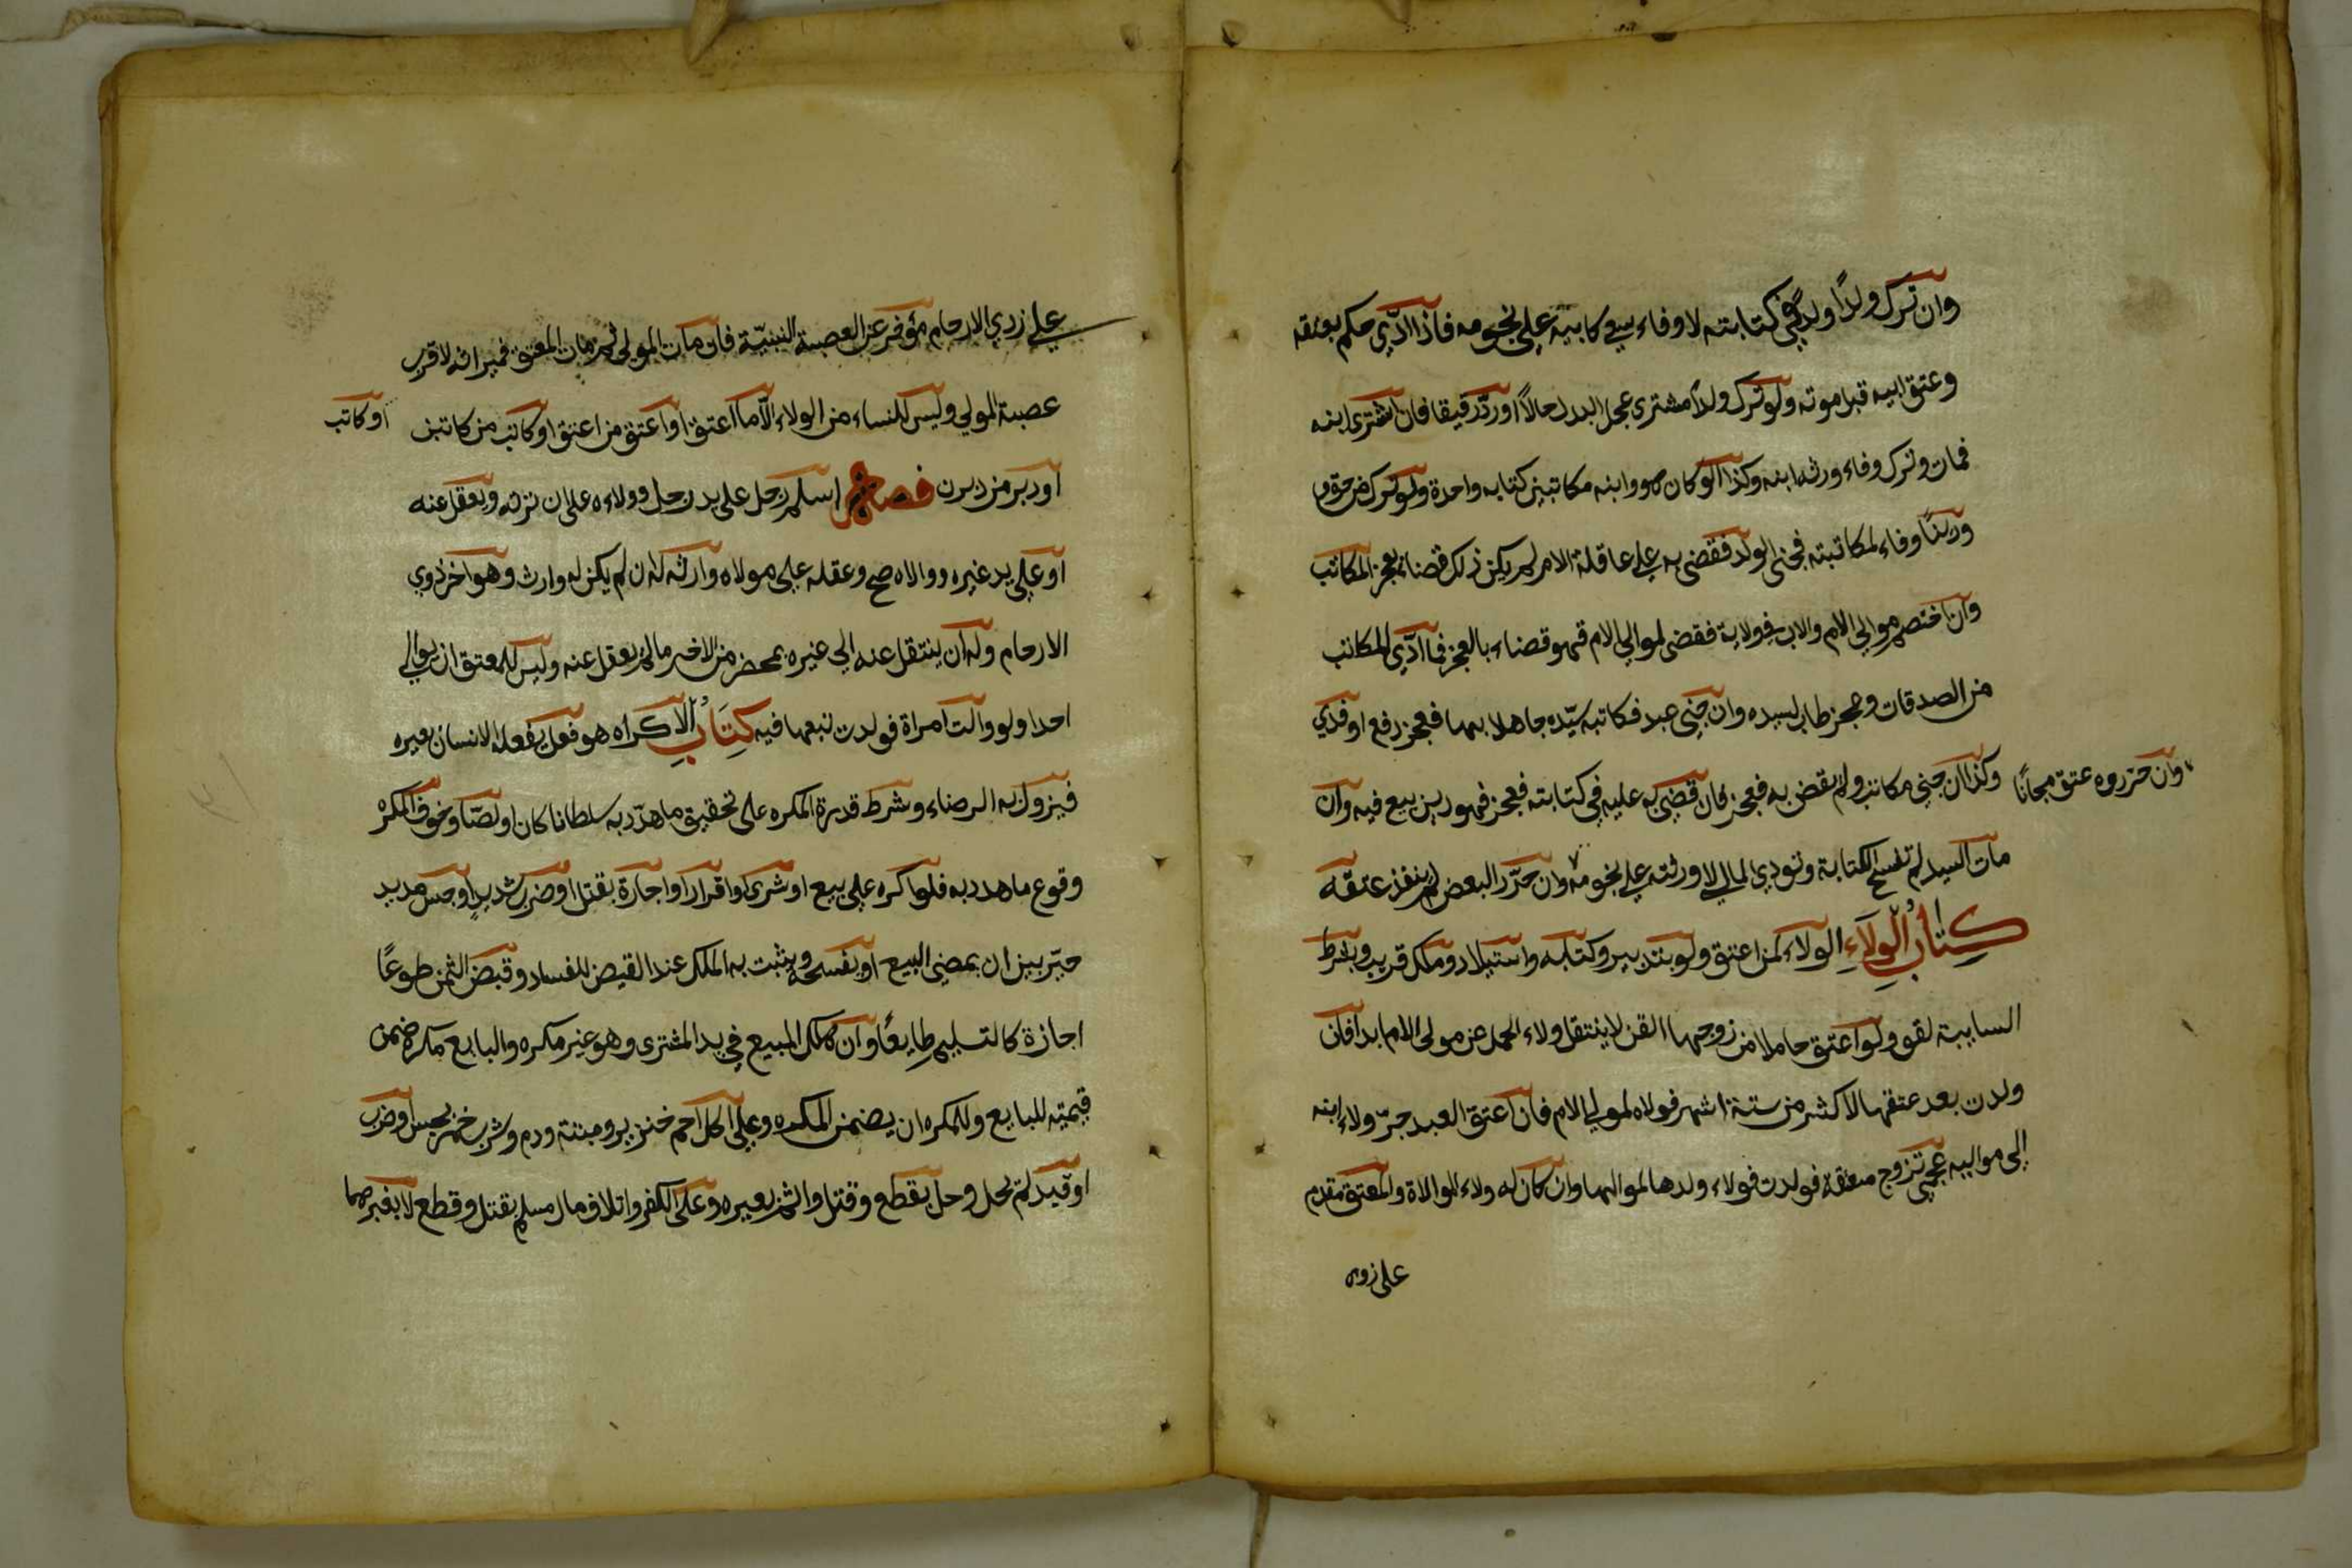 وان ترك ولدًا ولد في كتابته لا وفاء سعي كابيه علي نجومه فاذا ادّي حكم بعتقه
وعتق ابيه قبل موته ولو ترك ولدًا مشتري عجل البدل حالاً او ردّ رقيقا فان اشتري ابنه
فمات وترك وفاء ورثه ابنه وكذا لو كان هو وابنه مكاتبين كتابه واحدة ولو ترك من حرة
ودينًا وفاء لمكاتبته فجني الولد فقضي به علي عاقلة الام لم يكن ذلك قضا بعجز المكاتب
وان اختصم موالي الام والاب في ولاية فقضي لموالي الام فهو قضاء بالعجز فما ادّي المكاتب
من الصدقات وعجز طاب لسيده وان جني عبد فكاتبه سيّده جاهلا بها فعجز دفع او فدي
وكذا ان جني مكاتب ولم يقض به فعجز فان قضي به عليه في كتابته فعجز فهو دين بيع فيه وان
وان حرروه عتق مجانًا
مات السيد لم تفسخ الكتابة وتودي المال لا ورثته علي نجومه وان حرّر البعض لم ينفذ عتقه
كتاب الولاء الولاء لمن اعتق ولو بتدبير وكتابه واستيلاد وملك قريب وبشرط
السايبة لغو ولو اعتق حاملا من زوجها القن لا ينتقل ولاء الحمل عن مولي الام ابدا فان
ولدت بعد عتقها لاكثر من ستة اشهر فولاه لموالي الام فان اعتق العبد جرّ ولاء ابنه
الي مواليه عجمي تزوج معتقة فولدت فولاء ولدها لمواليها وان كان له ولاء الموالاة والمعتق مقدم
علي ذوي
علي ذوي الارحام مؤخر عن العصبة النسبيّة فان مات المولي ثم مات المعتق فميراثه لاقرب
عصبة المولي وليس للنساء من الولاء الّا ما اعتقن او اعتق من اعتقن او كاتبن من كاتبن
او كاتب
او دبر من دبرن فصل اسلم رجل علي يد رجل وولاءه علي ان يرثه ويعقل عنه
او علي يد غيره ووالاه صح وعقله علي مولاه وارثه له ان لم يكن له وارث وهو اخر ذوي
الارحام وله ان ينتقل عنه الي غيره بمحضر من الاخر مالم يعقل عنه وليس للمعتق ان يوالي
احدا ولو والت امراة فولدت تبعها فيه كتاب الاكراه هو فعل يفعله الانسان بغيره
فيزول به الرضاء وشرط قدرة المكره علي تحقيق ما هدّد به سلطانا كان او لصّا وخوف المكره
وقوع ما هدد به فلو اكره علي بيع او شري او اقرار او اجارة بقتل او ضرب شديد او حبس مديد
خيّر بين ان يمضي البيع او يفسخه ويثبت به الملك عند القبض للفساد وقبض الثمن طوعًا
اجازة كالتسليم طايعًا وان هلك المبيع في يد المشتري وهو غير مكره والبايع مكره ضمن
قيمته للبايع وللمكره ان يضمن المكره وعلي اكل لحم خنزير وميتة ودم وشرب خمر بحبس او ضرب
او قيد لم يحل وحل بقطع وقتل واثم بصبره وعلي الكفر واتلاف مال مسلم بقتل وقطع لا بغيرهما